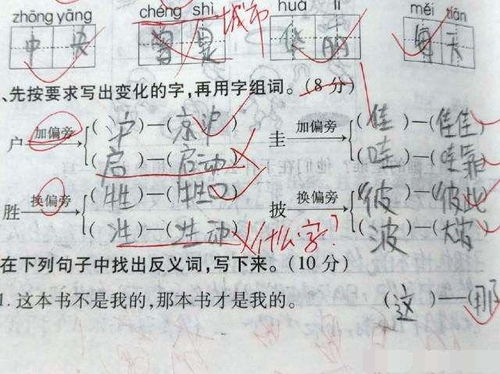 zhōng yāng chéng shì huá lì měi tiān
中央 城市 每天
、先按要求写出变化的字,再用字组词。(8分)
户 加偏旁 (沪)—(京沪) 圭 加偏旁 (佳)—(佳佳)
(启)—(启动) (哇)—(哇靠)
胜 换偏旁 (牲)—(牲口) 披 换偏旁 (彼)—(彼此)
生动 什么字? (波)—(大波)
在下列句子中找出反义词,写下来。(10分)
1. 这本书不是我的,那本书才是我的。 (这)—(那